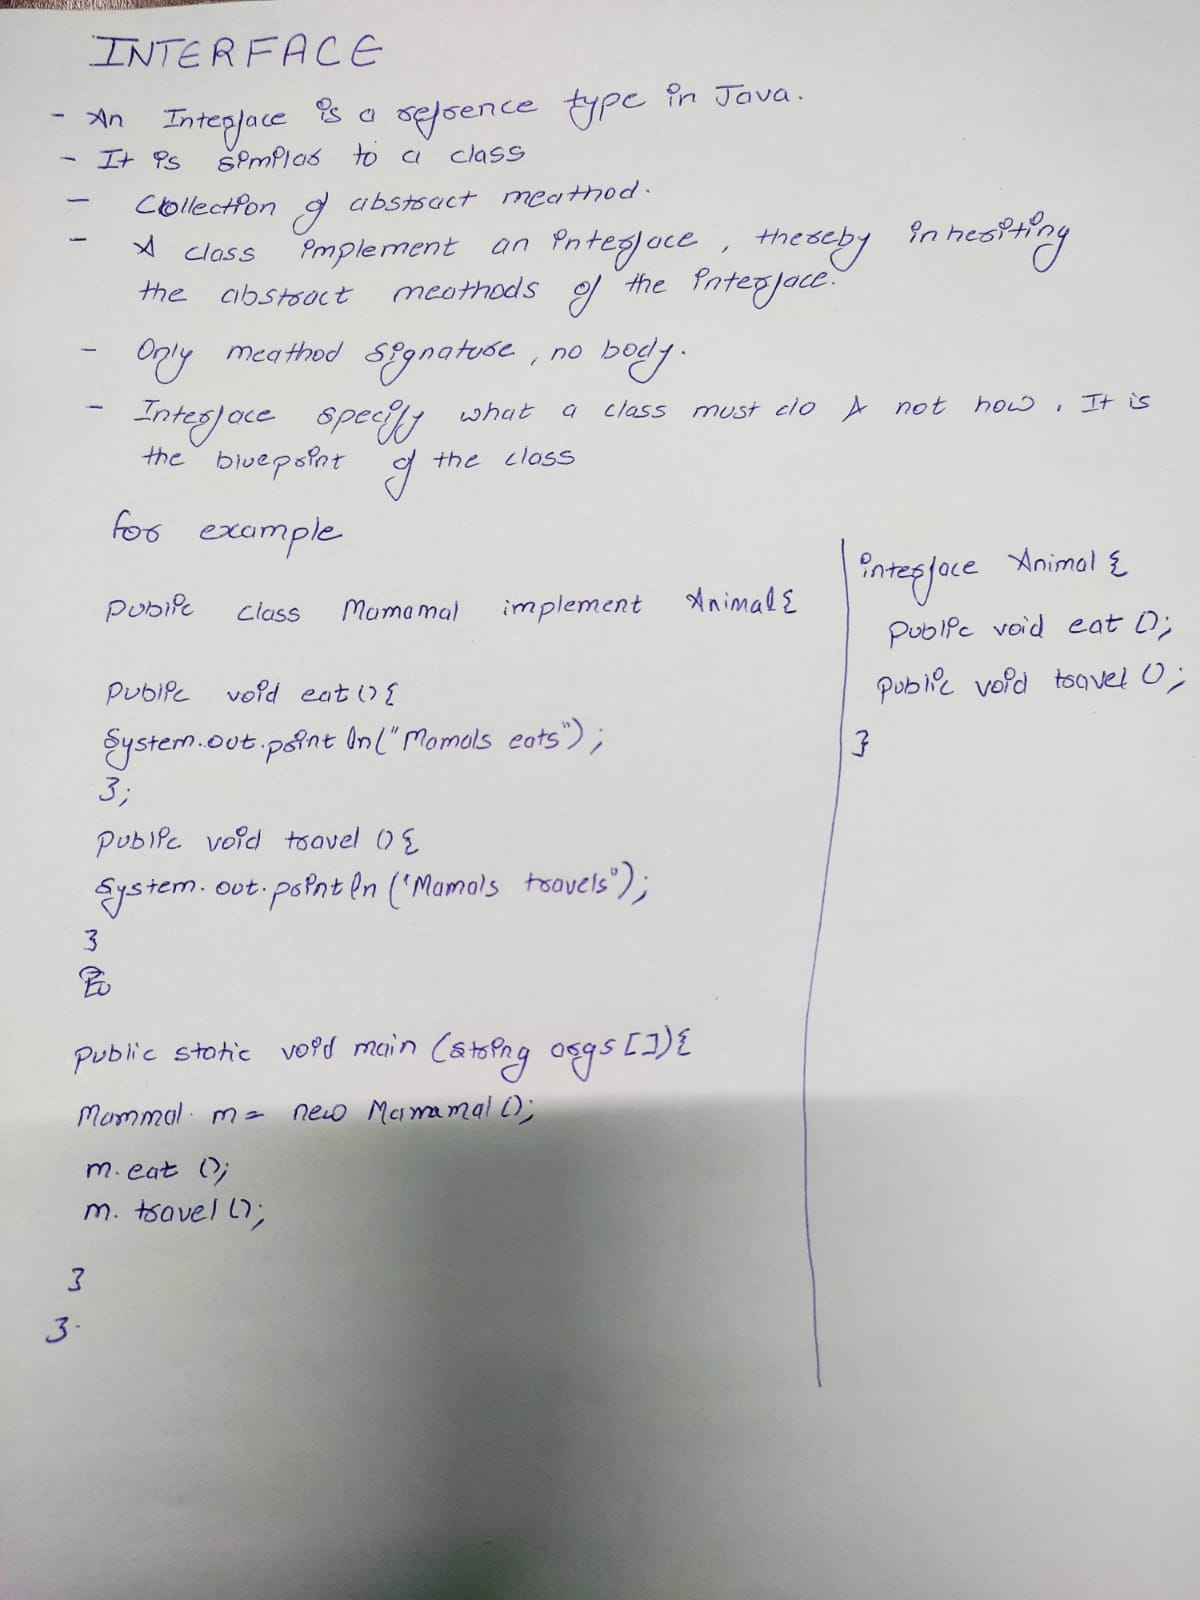 INTERFACE
- An Interface is a refrence type in Java.
- It is similar to a class
- Collection of abstract meathod.
- A class implement an interface, thereby inheriting
the abstract meathods of the interface.
- Only meathod signature, no body.
- Interface specify what a class must do & not how. It is
the blueprint of the class
for example
public class Mamamal implement Animal {
public void eat () {
System.out.print ln(" Mamals eats");
};
public void travel () {
System.out.println ("Mamals travels");
}
public static void main (string args []) {
Mammal m = new Mamamal ();
m.eat ();
m. travel ();
}
}.
interface Animal {
public void eat ();
public void travel ();
}